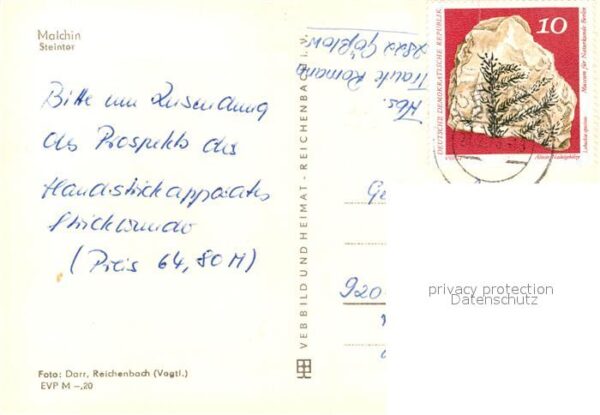 Malchin
Steintor
Bitte um Zusendung
des Prospekts des
Handstrickapparates
Strickwunder
(Preis 64,80 M)
Foto: Darr, Reichenbach (Vogtl.)
EVP M –,20
VEB BILD UND HEIMAT · REICHENBACH i. V.
Abs.
Traute Romano
DEUTSCHE DEMOKRATISCHE REPUBLIK
10
Museum für Naturkunde Berlin
Ge
920
privacy protection
Datenschutz